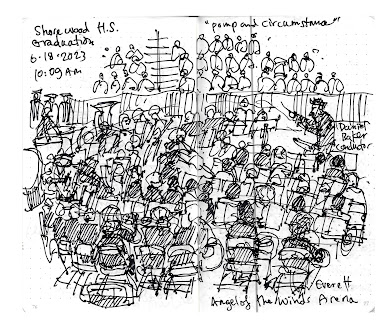 Shorewood H.S.
graduation
6-18-2023
10:09 AM
"pomp and circumstance"
Baker
conductor
Everett
Angel of the Winds Arena